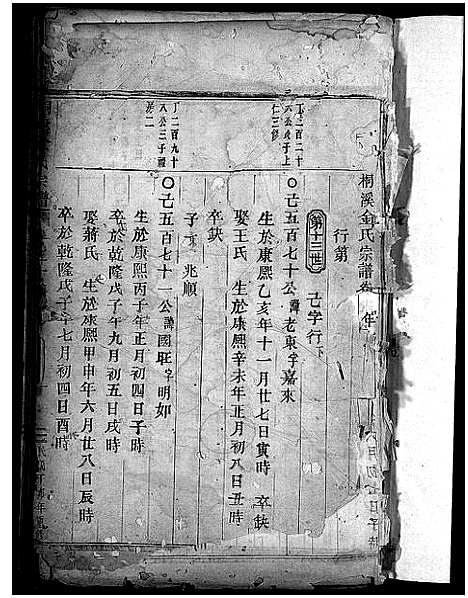 桐溪金氏宗譜
行第
第十三世 己字行下
仁三儀
〇己五百七十公諱老東字嘉來
生於康熙乙亥年十一月廿七日寅時 卒缺
娶王氏 生於康熙辛未年正月初八日丑時
卒缺
子 兆順
丁二百九十
八公三子
〇己五百七十一公諱國旺字明如
生於康熙丙子年正月初四日子時
卒於乾隆戊子年九月初五日戌時
娶蔣氏 生於康熙甲申年六月廿八日辰時
卒於乾隆戊子年七月初四日酉時